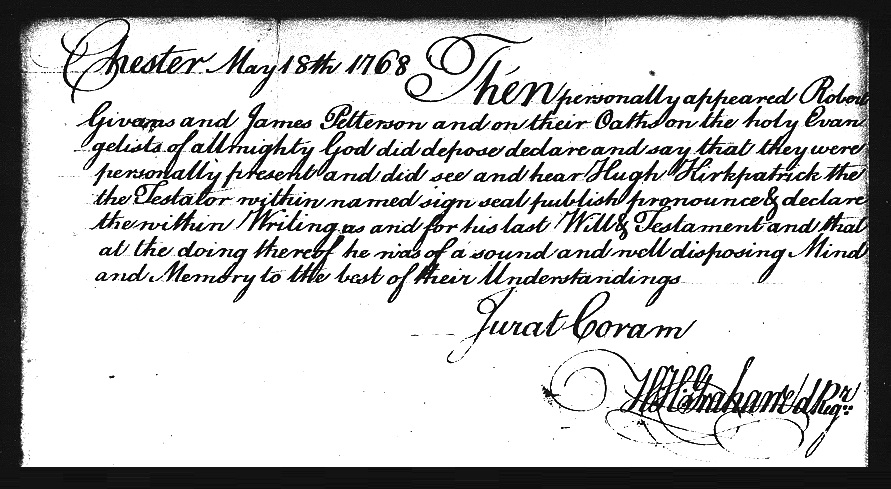 Chester May 18th 1768 Then personally appeared Robert
Givans and James Petterson and on their Oaths on the holy Evan
gelists of allmighty God did depose declare and say that they were
personally present and did see and hear Hugh Kirkpatrick the
the Testator within named sign seal publish pronounce & declare
the within Writing as and for his last Will & Testament and that
at the doing thereof he was of a sound and well disposing Mind
and Memory to the best of their Understandings
Jurat Coram
Graham